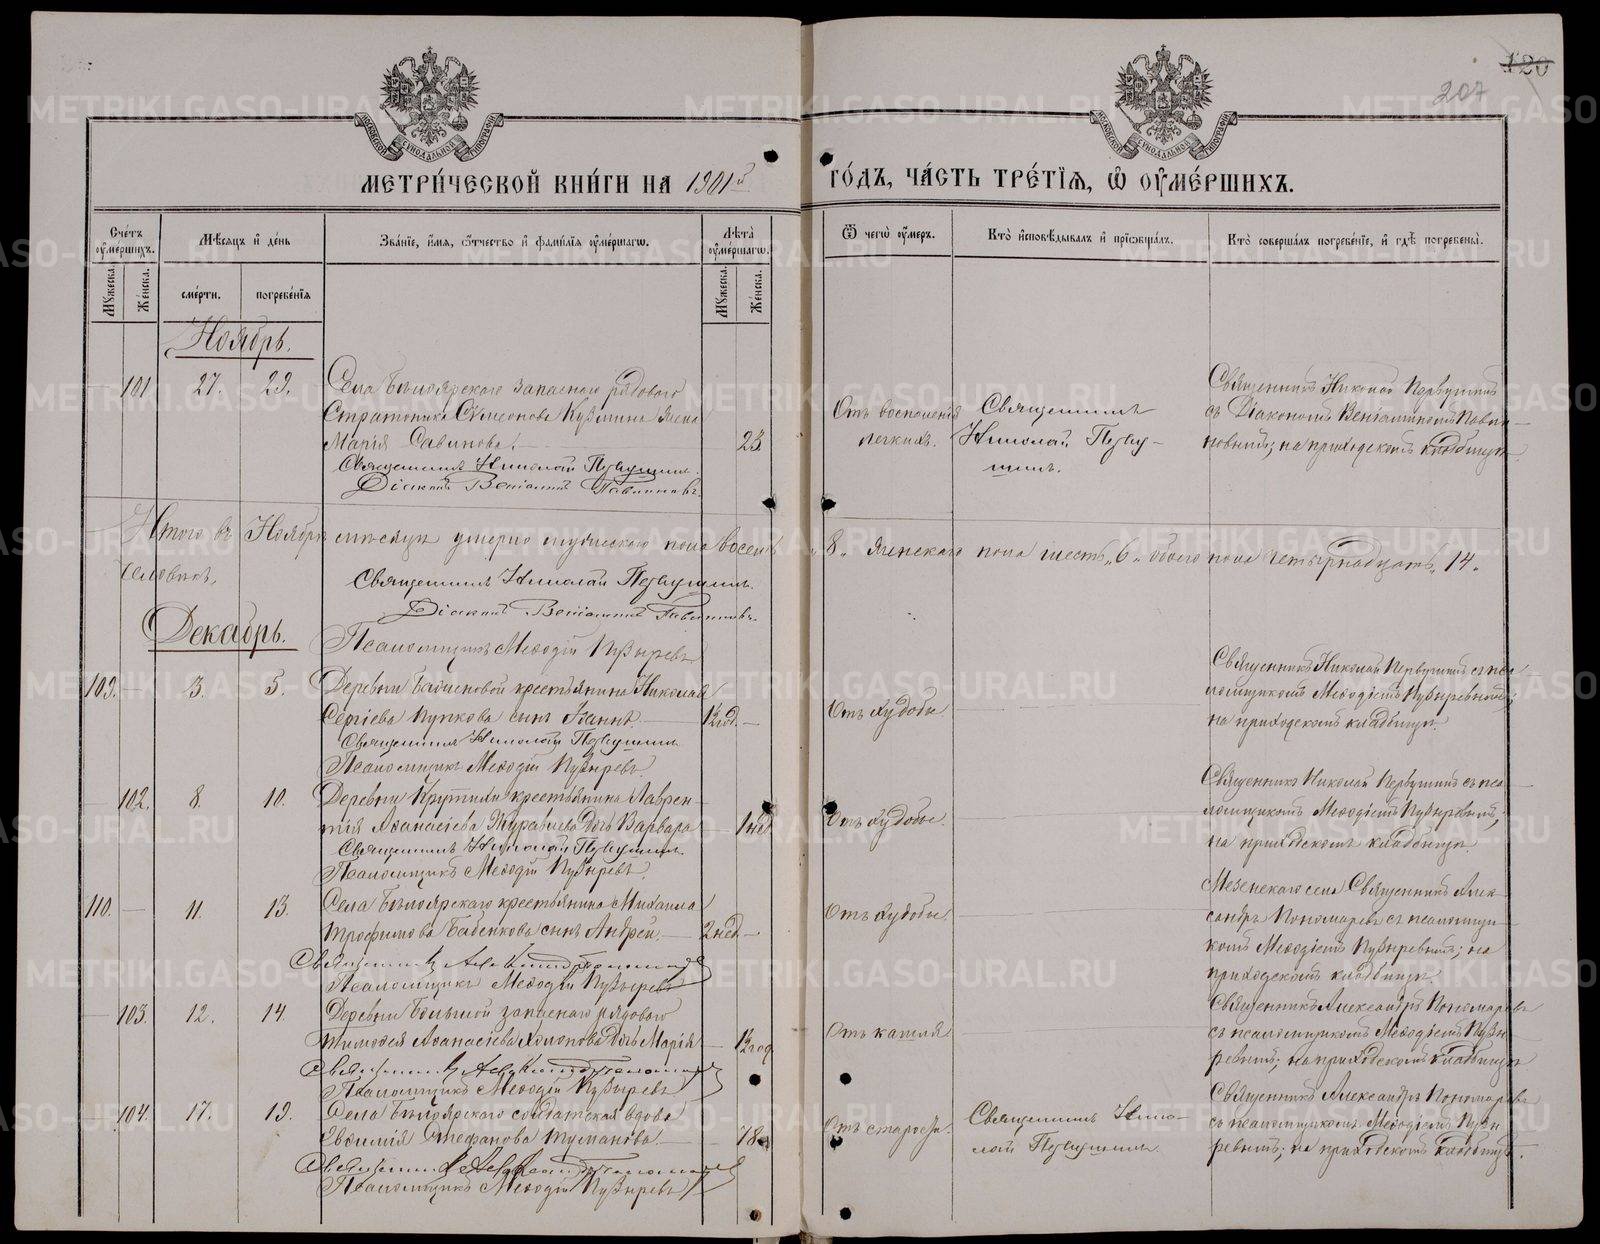 120
207
МОСКОВСКОЙ СѴНОДАЛЬНОЙ ТИПОГРАФИИ
МОСКОВСКОЙ СѴНОДАЛЬНОЙ ТИПОГРАФИИ
МЕТРИ́ЧЕСКОЙ КНИ́ГИ НА 1901й ГО́ДЪ, ЧА́СТЬ ТРЕ́ТІѦ, Ѽ ОУМЕ́РШИХЪ.
Сче́тъ оуме́ршихъ.
Мꙋжеска.
Же́нска.
Мѣ́сѧцъ и де́нь
сме́рти.
погребе́нїѧ
Зва́нїе, и́мѧ, ѻ́тчество и фами́лїѧ оуме́ршагѡ.
Лѣ́та оуме́ршагѡ.
Мꙋжеска.
Же́нска.
Ѿ чегѡ̀ оу́меръ.
Кто̀ и́сповѣ́дывалъ и прїѡбща́лъ.
Кто̀ соверша́лъ погребе́нїе, и гдѣ̀ погребены̀.
Ноябрь.
101 27. 29. Села Бѣлоярскаго запаснаго рядового
Стратоника Сѵмеонова Кузмина жена
Марія Савинова. 23.
Священникъ Николай Первушинъ.
Діаконъ Веніаминъ Павлиновъ.
Отъ воспаленія
легкихъ.
Священникъ
Николай Перву-
шинъ.
Священникъ Николай Первушинъ
съ Діакономъ Веніаминомъ Павли-
новымъ; на приходскомъ кладбищѣ.
Итого въ Ноябрѣ мѣсяцѣ умерло мужескаго пола восемь „8„ женскаго пола шесть „6„ обоего пола четырнадцать „14„
человѣкъ.
Священникъ Николай Первушинъ.
Діаконъ Веніаминъ Павлиновъ.
Псаломщикъ Меѳодій Пузыревъ
Декабрь.
109. — 3. 5. Деревни Бабиковой крестьянина Николая
Сергіева Пупкова сынъ Іоаннъ. 1½ год. —
Священникъ Николай Первушинъ
Псаломщикъ Меѳодій Пузыревъ.
Отъ худобы.
Священникъ Николай Первушинъ съ пса-
ломщикомъ Меѳодіемъ Пузыревымъ;
на приходскомъ кладбищѣ.
102. 8. 10. Деревни Крутихи крестьянина Лаврен-
тія Аѳанасіева Журавлева дочь Варвара 1 нед.
Священникъ Николай Первушинъ.
Псаломщикъ Меѳодій Пузыревъ.
Отъ худобы.
Священникъ Николай Первушинъ съ пса-
ломщикомъ Меѳодіемъ Пузыревымъ;
на приходскомъ кладбищѣ.
110. — 11. 13. Села Бѣлоярскаго крестьянина Михаила
Трофимова Бабенкова сынъ Андрей. — 2 нед. —
Священникъ Александръ Пономаревъ
Псаломщикъ Меѳодій Пузыревъ
Отъ худобы.
Мезенскаго села Священникъ Алек-
сандръ Пономаревъ съ псаломщи-
комъ Меѳодіемъ Пузыревымъ; на
приходскомъ кладбищѣ.
103. 12. 14. Деревни Большой запаснаго рядового
Тимоѳея Аѳанасіева дочь Марія 1½ год.
Священникъ Александръ Пономаревъ
Псаломщикъ Меѳодій Пузыревъ
Отъ кашля
Священникъ Александръ Пономаревъ
съ псаломщикомъ Меѳодіемъ Пузы-
ревымъ; на приходскомъ кладбищѣ
104. 17. 19. Села Бѣлоярскаго солдатская вдова
Евфимія Стефанова Туманова. 78.
Священникъ Александръ Пономаревъ
Псаломщикъ Меѳодій Пузыревъ
Отъ старости.
Священникъ Нико-
лай Первушинъ.
Священникъ Александръ Пономаревъ
съ псаломщикомъ Меѳодіемъ Пузы-
ревымъ; на приходскомъ кладбищѣ.
METRIKI.GASO-URAL.RU